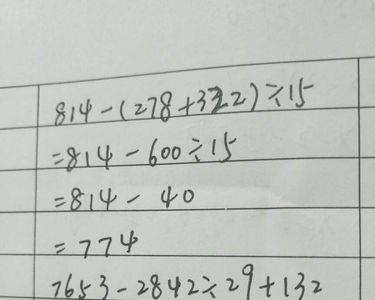 814-(278+322)÷15
=814-600÷15
=814-40
=774
7653-2842÷29+132